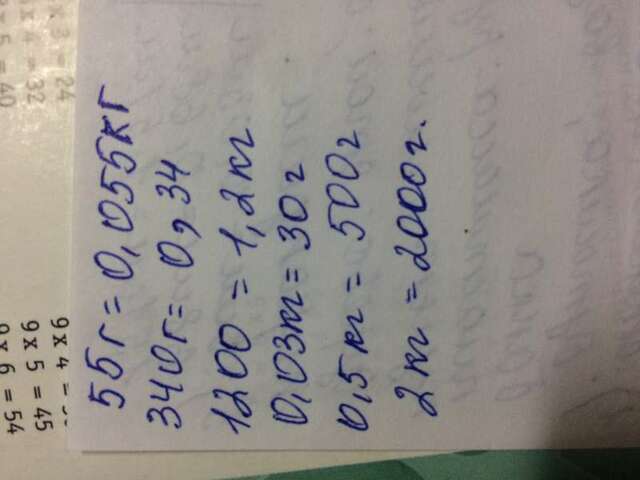 9 x 6 = 54
9 x 5 = 45
x 5 = 40
x 4 = 32
x 3 = 24
55г = 0,055кг
340г = 0,34
1200 = 1,2кг
0,03кг = 30г
0,5кг = 500г
2кг = 2000г.